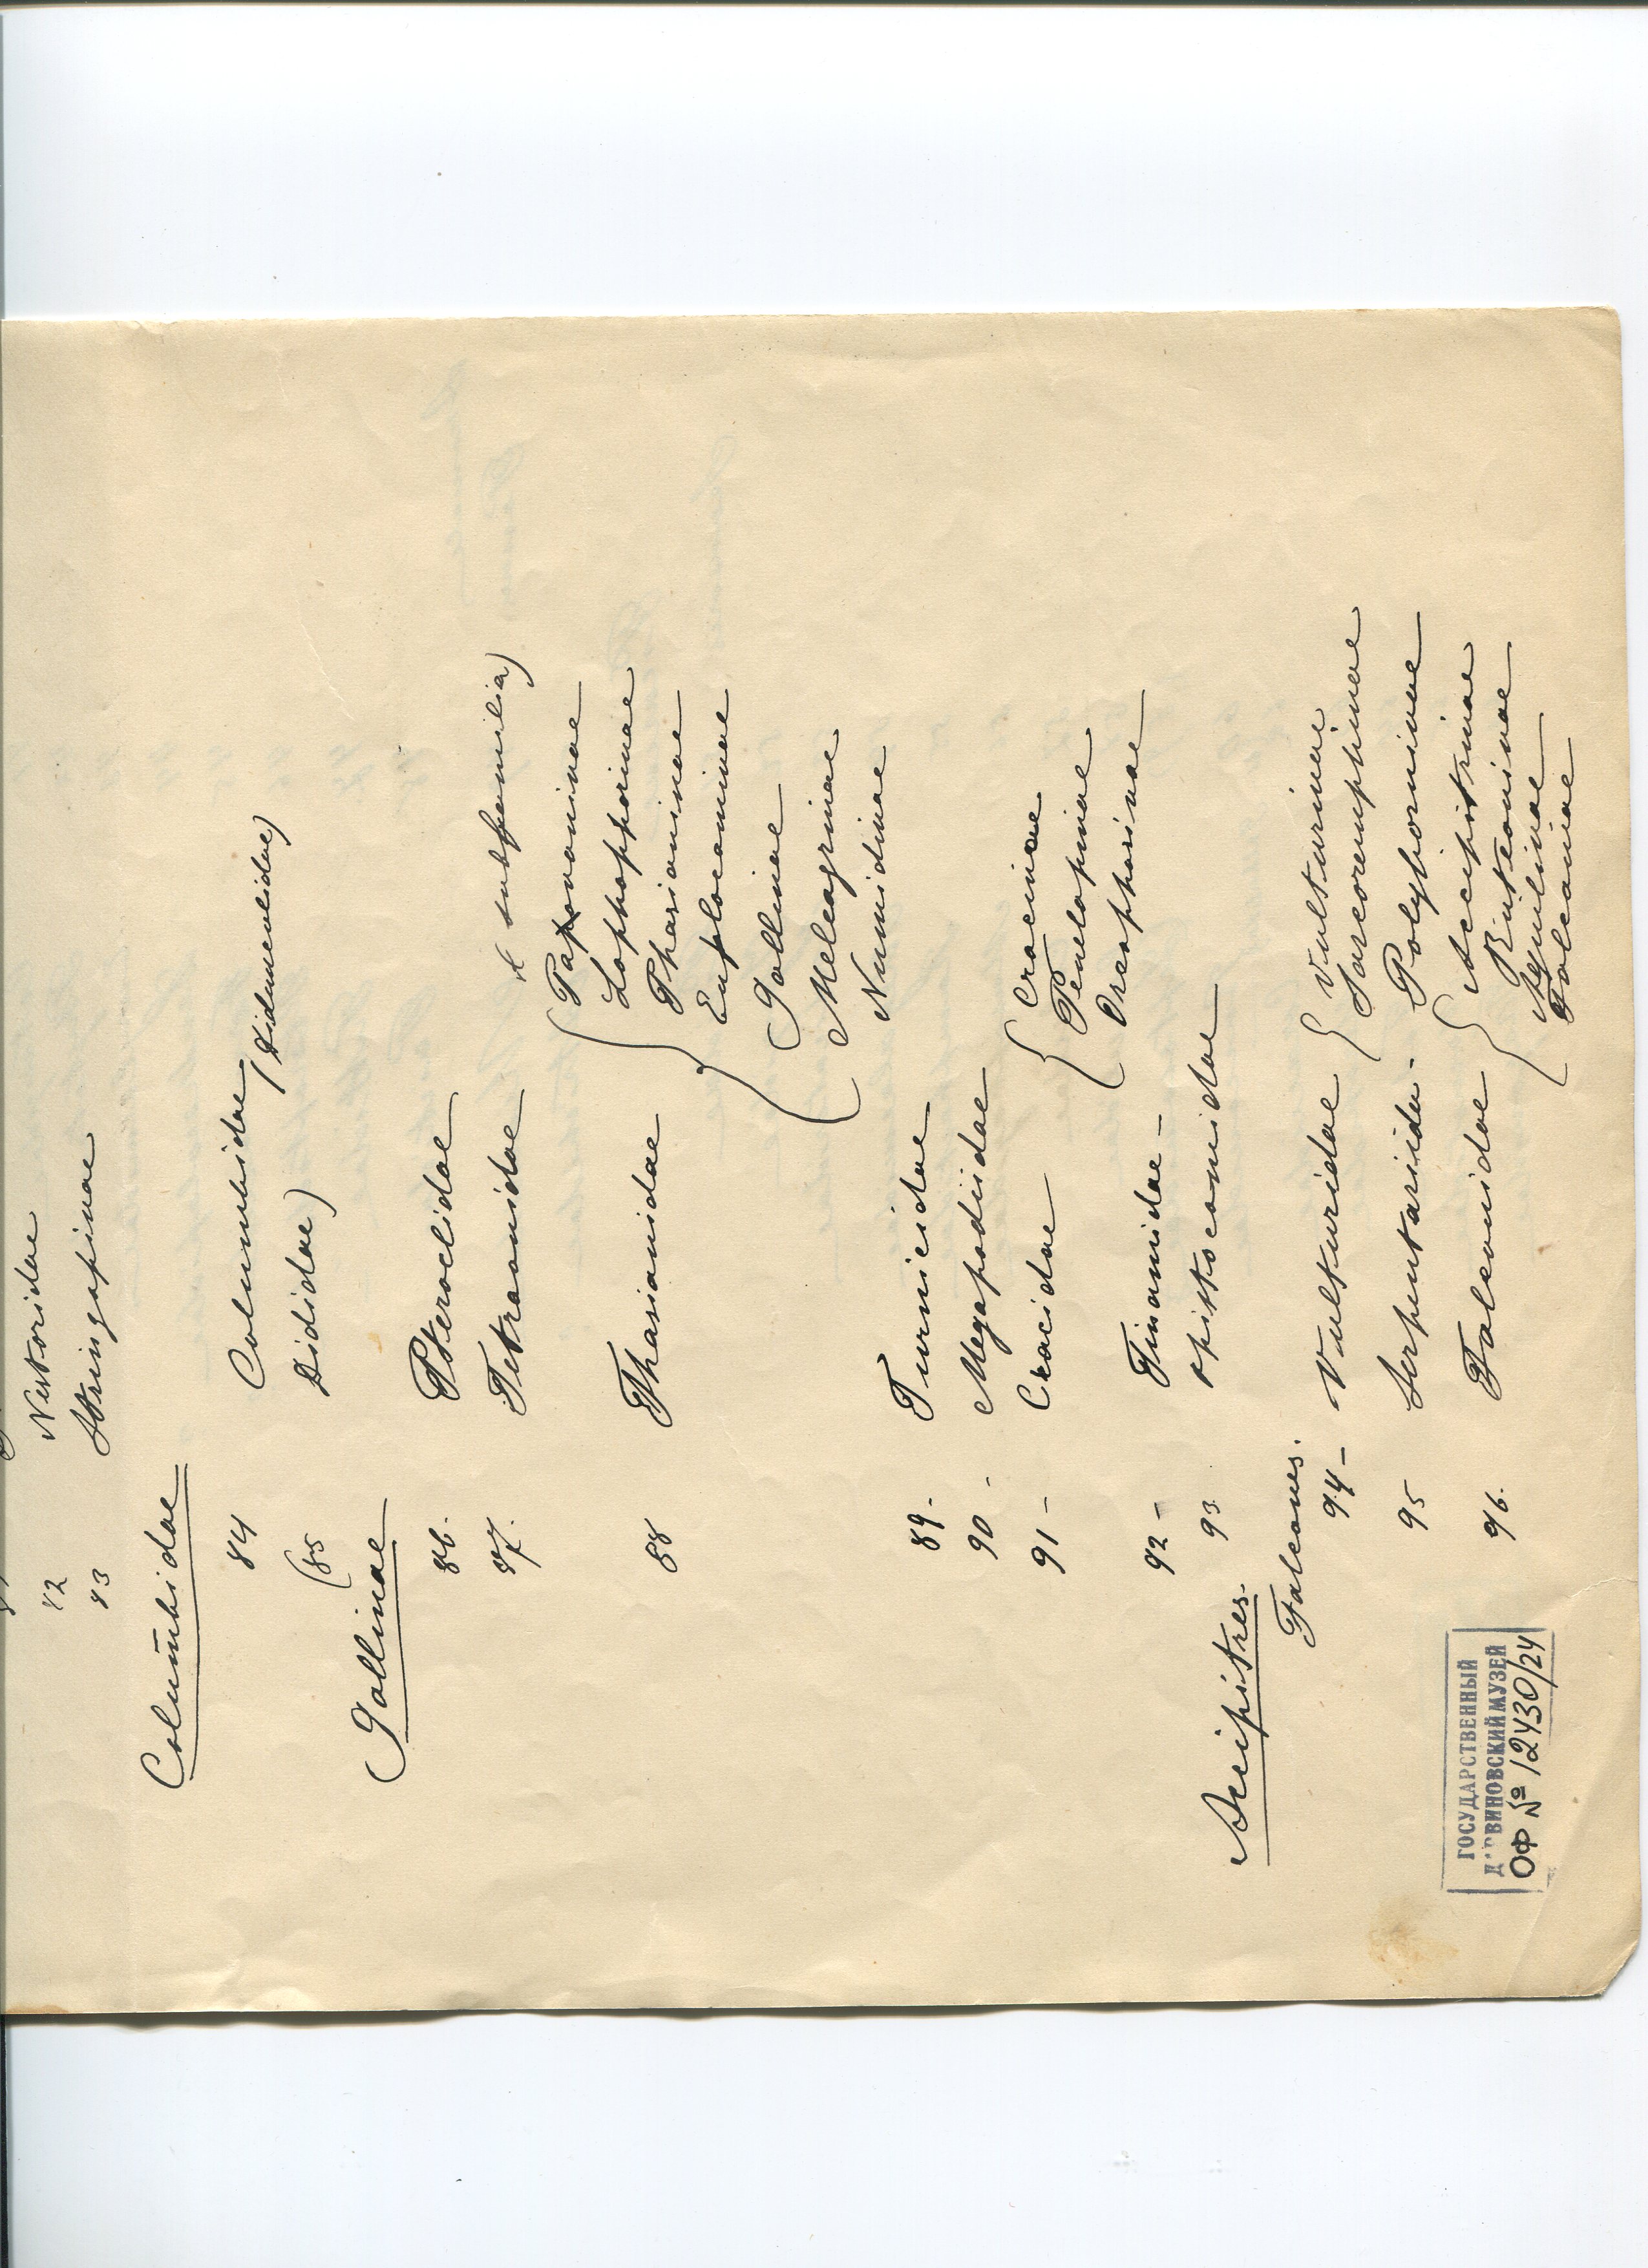 82 Nestoridae
83 Stringopinae
Columbidae
84 Columbidae (Didunculidae)
(85 Dididae)
Gallinae
86. Pteroclidae
87. Tetraonidae
subfamilia)
Pavoninae
Lophophorinae
88 Phasianidae { Phasianinae
Euplocaminae
Gallinae
Meleagrinae
Numidinae
89- Turnicidae
90- Megapodiidae
91- Cracidae { Cracinae
Penelopinae
Oreophasinae
92- Tinamidae-
93 Opistocomidae
Accipitres.
Falcones.
94- Vulturidae { Vulturinae
Sarcoramphinae
95 Serpentaridae-
Polyborinae
96. Falconidae { Accipitrinae
Buteoninae
Aquilinae
Falconinae
ГОСУДАРСТВЕННЫЙ
ДАРВИНОВСКИЙ МУЗЕЙ
ОФ № 12430/24